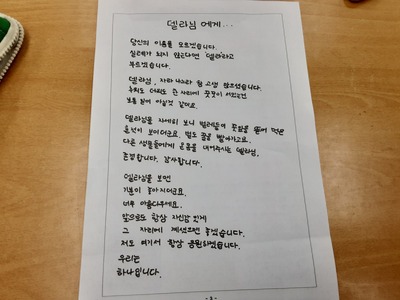 델라님 에게...
당신의 이름을 모르겠습니다.
실례가 되지 않는다면 '델라'라고
부르겠습니다.
델라님, 자라나느라 참 고생 많으셨습니다.
추위도 더위도 한 자리에 꿋꿋이 서있는건
보통 일이 아닐것 같아요.
델라님을 자세히 보니 벌레들이 꽃잎을 뜯어 먹은
흔적이 보이더군요. 벌도 꿀을 빨아가고요.
다른 생물들에게 온몸을 내어주시는 델라님,
존경합니다. 감사합니다.
델라님을 보면
기분이 좋아지더군요.
너무 아름다우세요.
앞으로도 항상 자신감 있게
그 자리에 계셨으면 좋겠습니다.
저도 여기서 항상 응원하겠습니다.
우리는
하나입니다.